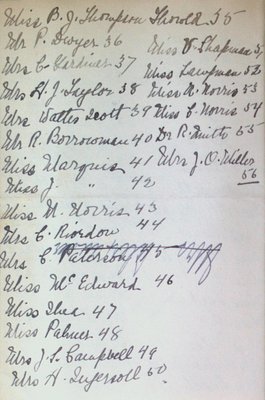 Miss B. J. Thompson Thorold 35
Mr P. Dwyer 36
Mrs C. Gardner 37
Mrs H. J. Taylor 38
Mrs Walter Scott 39
Mr R. Borrowman 40
Miss Marquis 41
Miss J. " 42
Miss M. Norris 43
Mrs C. Riordow 44
Mrs C Paterson 45
Miss McEdward 46
Miss Shea 47
Miss Palmer 48
Mrs J. S. Campbell 49
Mrs H. Ingersoll 50
Miss V. Shapman 51
Miss Lawpman 52
Miss A. Norris 53
Miss C. Norris 54
Dr P. Smitts 55
Mrs J. O. Miller
56